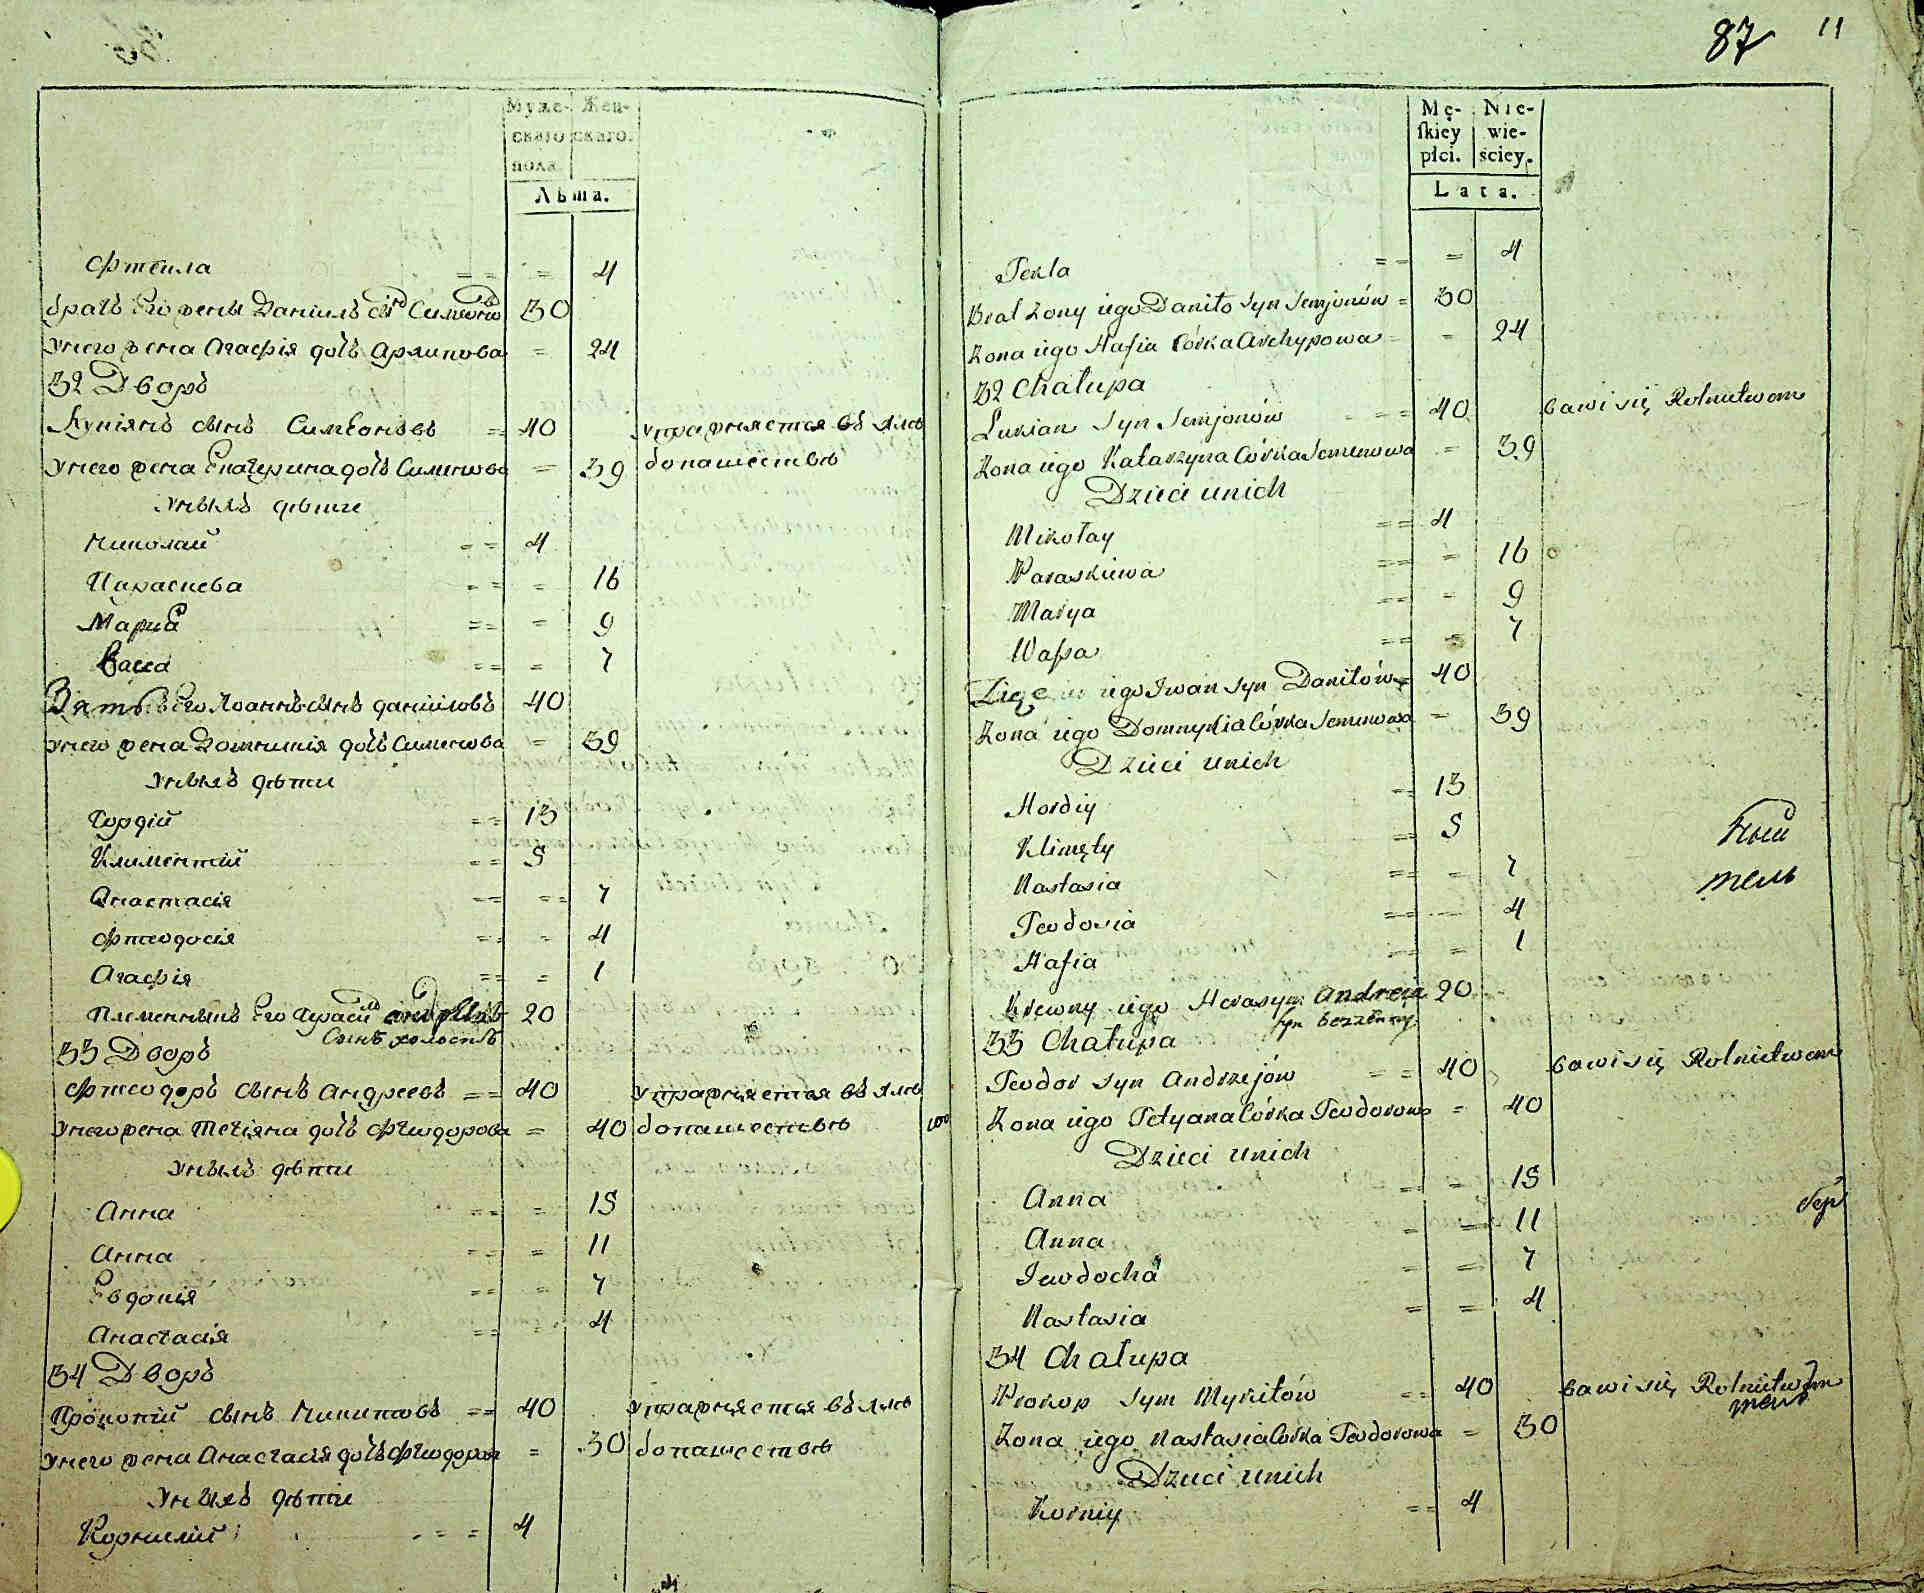 Муже- Жен-
скаго скаго.
пола.
Лѣта.
Фтекла = = = 4
братъ Его жены Данiилъ сынъ Симеоновъ 30
Унего жена Агафiя дочь Архипова = 24
32 Дворъ
Лукiянъ сынъ Симеоновъ = 40 упражняется въ хлѣ
Унего жена Екатерина дочь Симеонова = 39 бопашествѣ
Унихъ дѣти
Николай = = 4
Параскева = = = 16
Марiа = = = 9
Васса = = = 7
Зять Его Iоаннъ сынъ данiиловъ 40
Унего жена Домникiя дочь Симеонова = 39
Унихъ дѣти
Гордiй = = 13
Климентiй = = 5
Анастасiя = = = = 7
Фтеодосiя = = = 4
Агафiя = = = 1
Племенникъ Его Герасим андреевъ 20
Сынъ холостъ
33 Дворъ
Фтеодоръ сынъ андреевъ = = 40 упражняется въ хлѣ
Унего жена Татiяна дочь Фтеодорова = 40 бопашествѣ
Унихъ дѣти
Анна = = = 15
Анна = = = 11
Евдокiя = = = 7
Анастасiя = = 4
34 Дворъ
Прокопiй сынъ Никитовъ = = 40 упражняется въ хлѣ
Унего жена Анастасiя дочь Фтеодорова = 30 бопашествѣ
Унихъ дѣти
Корнилiй = = = 4
87 11
Mę- Nie-
ſkiey wie-
płci. ściey.
Lata.
Tekla = = = 4
Brat Żony iego Daniło Syn Semjonów = 30
Żona iego Hafia Córka Archypowa = = 24
32 Chałupa
Łukian Syn Semjonów = = = 40 bawi się Rolnictwem
Żona iego Katarzyna Córka Semenowa = 39
Dzieci unich
Mikołay = = 4
Paraskiewa = = = 16
Marya = = = 9
Waſsa = = = 7
Zięć iego Iwan Syn Daniłów = 40
Żona iego Domnykia Córka Semenowa = 39
Dzieci unich
Hordiy = 13
Klimęty = 5 ный
Nastasia = = = 7 тель
Teodosia = = 4
Hafia = = = 1
Krewny iego Herasym Andreia 20
Syn bezżenny
33 Chałupa
Teodor Syn Andrzejów = = 40 bawi się Rolnictwem
Żona iego Tetyana Córka Teodorowa = 40
Dzieci unich
Anna = = 15
Anna = = 11
Iewdocha = = 7
Nastasia = = 4
34 Chałupa
Prokop Syn Mykitów = = 40 bawi się Rolnictwem
Żona iego Nastasia Córka Teodorowa = 30
Dzieci unich
Korniy = = 4